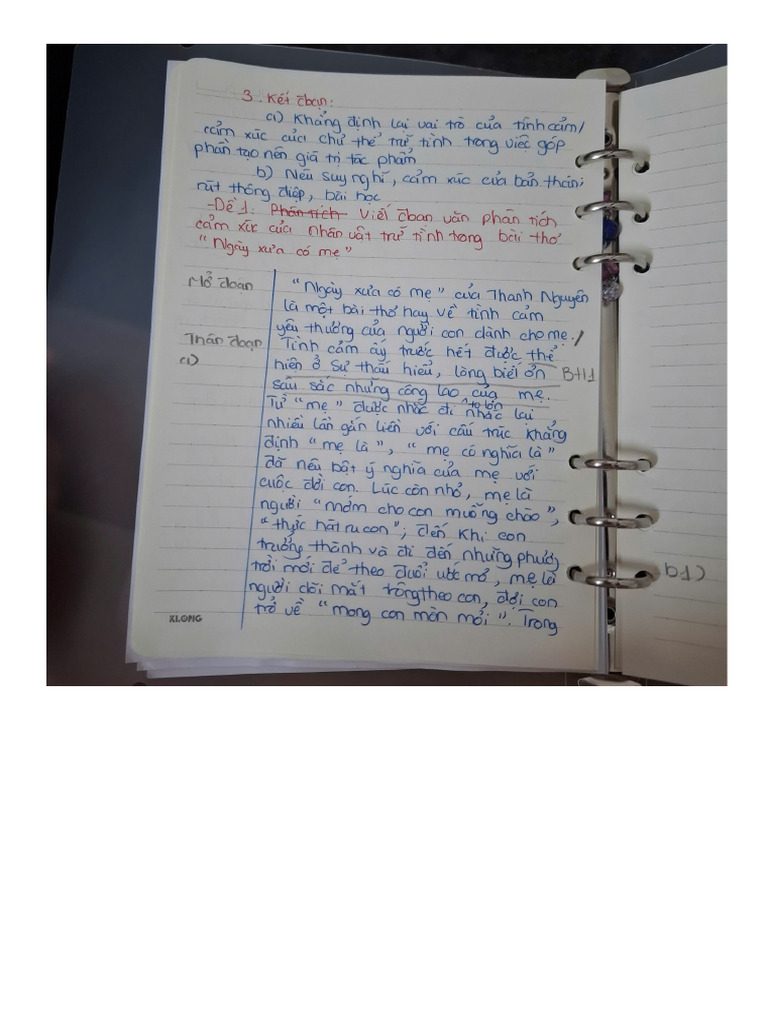 3. Kết đoạn:
a) Khẳng định lại vai trò của tình cảm/
cảm xúc của chủ thể trữ tình trong việc góp
phần tạo nên giá trị tác phẩm
b) Nêu suy nghĩ, cảm xúc của bản thân;
rút thông điệp, bài học
- Đề 1: Phân tích Viết đoạn văn phân tích
cảm xúc của nhân vật trữ tình trong bài thơ
"Ngày xưa có mẹ"
Mở đoạn "Ngày xưa có mẹ" của Thanh Nguyên
là một bài thơ hay về tình cảm
yêu thương của người con dành cho mẹ./
Thân đoạn Tình cảm ấy trước hết được thể
a) hiện ở sự thấu hiểu, lòng biết ơn BH1
sâu sắc những công lao to lớn của mẹ.
Từ "mẹ" được nhắc đi nhắc lại
nhiều lần gắn liền với cấu trúc khẳng
định "mẹ là", "mẹ có nghĩa là"
đã nêu bật ý nghĩa của mẹ với
cuộc đời con. Lúc còn nhỏ, mẹ là
người "mớm cho con muỗng cháo",
"thức hát ru con"; đến khi con
trưởng thành và đi đến những phương
trời mới để theo đuổi ước mơ, mẹ là
người dõi mắt trông theo con, đợi con
trở về "mong con mòn mỏi". Trong
KLONG
b1)